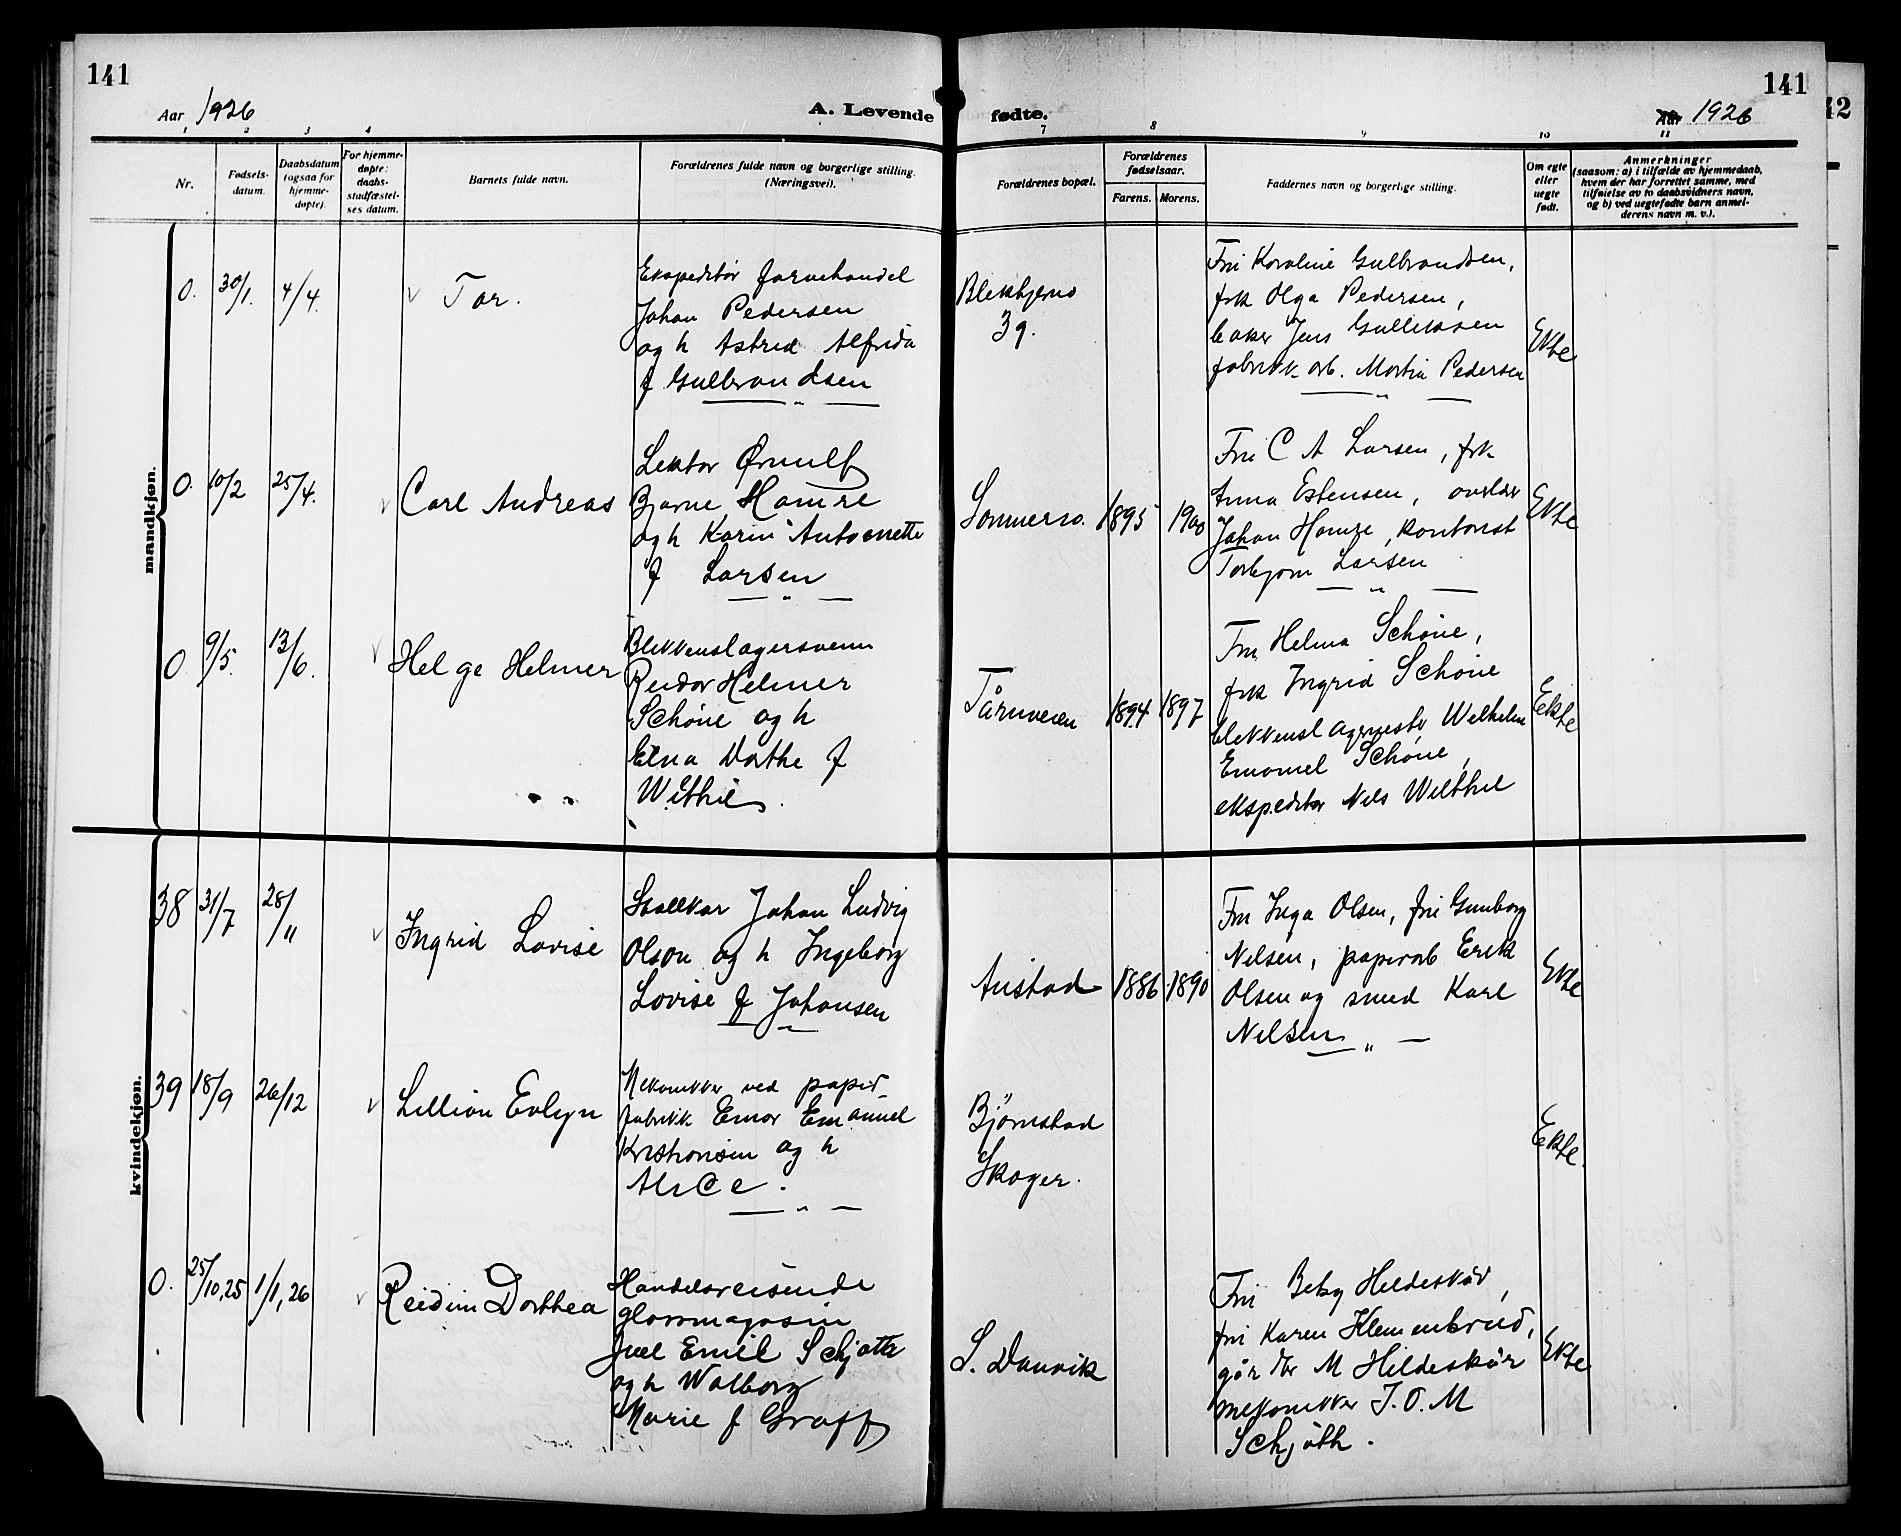 141
141
42
Aar 1926
A. Levende fødte.
Aar 1926
1 2 3 4 7 8 9 10 11
Nr.
Fødsels-
datum.
Daabsdatum
(ogsaa for
hjemme-
døpte).
For hjemme-
døpte:
daabs-
stadfæstel-
ses datum.
Barnets fulde navn.
Forældrenes fulde navn og borgerlige stilling.
(Næringsvei).
Forældrenes bopæl.
Forældrenes
fødselsaar.
Farens. Morens.
Faddernes navn og borgerlige stilling.
Om egte
eller
uegte
født.
Anmerkninger
(saasom: a) i tilfælde av hjemmedaab,
hvem der har forrettet samme, med
tilføielse av to daabsvidners navn,
og b) ved uegtefødte barn anmel-
derens navn m. v.).
mandkjøn.
0. 30/1. 4/4. Tor.
Ekspeditør farvehandel
Johan Pedersen
og h Astrid Alfrida
f Gulbrandsen
Blekkhjerns
39.
Fru Karoline Gulbrandsen,
frk Olga Pedersen,
baker Jens Gulliksen
fabrikk arb. Martin Pedersen
Ekte
0. 10/2 25/4. Carl Andreas
Lektor Ørnulf
Bjarne Hamre
og h Karin Antoinette
f Larsen
1895 1900
Fru C A Larsen, frk
Anna Estensen, overlær
Johan Hamre, kontorist
Torbjørn Larsen
Ekte
0 9/5. 13/6. Helge Helmer
Blikkenslagersvenn
Reidar Helmer
Schöne og h
Elna Dorthe f
Wilthil.
Tårnveien
1894 1897
Fru Helma Schöne,
frk Ingrid Schöne
blikkenslagermester Wilhelm
Emanuel Schöne,
ekspeditør Nils Wilthil
Ekte
kvindekjøn.
38 31/7 28/11 Ingrid Lovise
Stallkar Johan Ludvig
Olsen og h Ingeborg
Lovise f Johansen
Austad
1886 1890
Fru Inga Olsen, fru Gunborg
Nilsen, papirarb Erik
Olsen og smed Karl
Nilsen
Ekte
39 18/9 26/12 Lillian Evlyn
Mekanikker ved papir-
fabrikk Einar Emanuel
Kristiansen og h
Alice.
Björnstad
Skoger.
Ekte.
0. 25/10, 25 1/1, 26 Reidun Dorthea
Handelsreisende
glassmagasin
Juel Emil Schjøth
og h Walborg
Marie f Graff
S. Danvik
Fru Betsy Hildeskår,
fru Karen Klemmenbrud,
går der M Hildeskår
mekanikker J. O. M
Schjøth.
Ekte